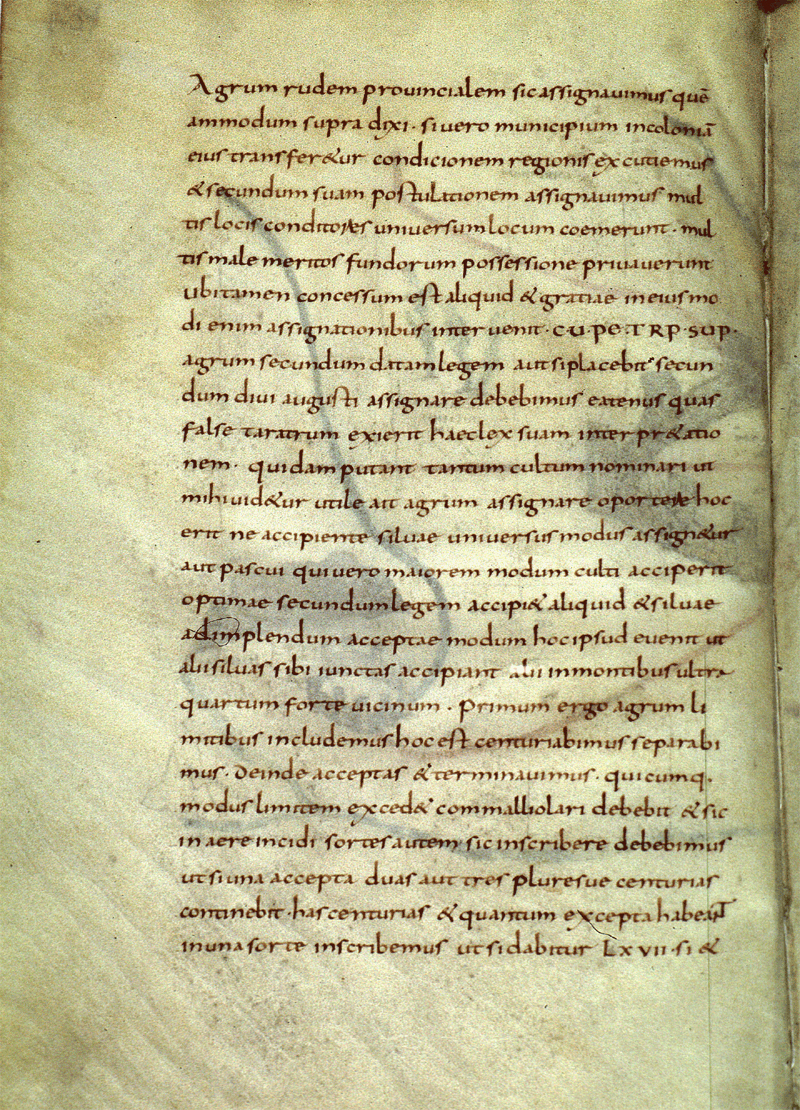 Agrum rudem prouincialem sic assignauimus quē
ammodum supra dixi · si uero municipium in coloniā
eius transfer&ur condicionem regionis excutiemus
& secundum suam postulationem assignauimus mul
tis locis conditores uniuersum locum coemerunt · mul
tis male meritos fundorum possessione priuauerunt
ubi tamen concessum est aliquid & gratiae in eius mo
di enim assignationibus interuenit · C·U·PE·T RP·SUP·
agrum secundum datam legem aut si placebit secun
dum diui augusti assignare debebimus eatenus quas
false taratrum exierit haec lex suam interpr&atio
nem · quidam putant tantum cultum nominari ut
mihi uid&ur utile ait agrum assignare oportere hoc
erit ne accipiente siluae uniuersus modus assign&ur
aut pascui qui uero maiorem modum culti acciperit
optimae secundum legem accipi& aliquid & siluae
adimplendum acceptae modum hoc ipsud euenit ut
alii siluas sibi iunctas accipiant alii in montibus ultra
quartum forte uicinum · primum ergo agrum li
mitibus includemus hoc est centuriabimus separabi
mus · deinde acceptas & terminauimus · quicumq.
modus limitem exced& commalliolari debebit & sic
in aere incidi sortes autem sic inscribere debebimus
ut si una accepta duas aut tres pluresue centurias
continebit · has centurias & quantum excepta habeant
in una sorte inscribemus ut si dabitur LXVII · si &